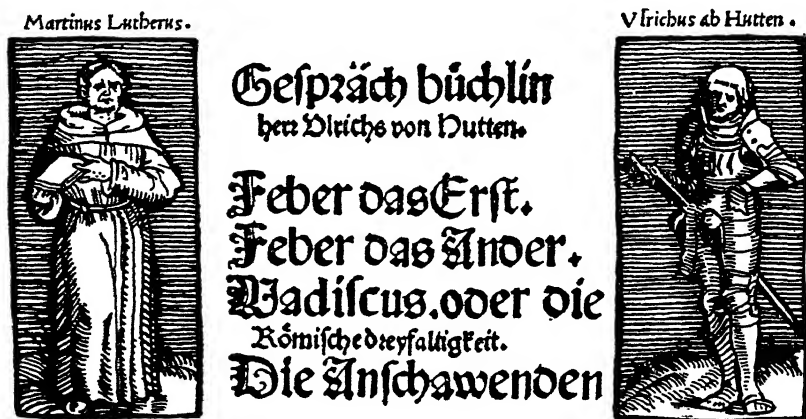 Martinus Lutherus.
Vlrichus ab Hutten.
Geſpräch büchlin
herr Vlrichs von Hutten.
Feber das Erſt.
Feber das Ander.
Wadiſcus. oder die
Römiſche dreyfaltigkeit.
Die Anſchawenden